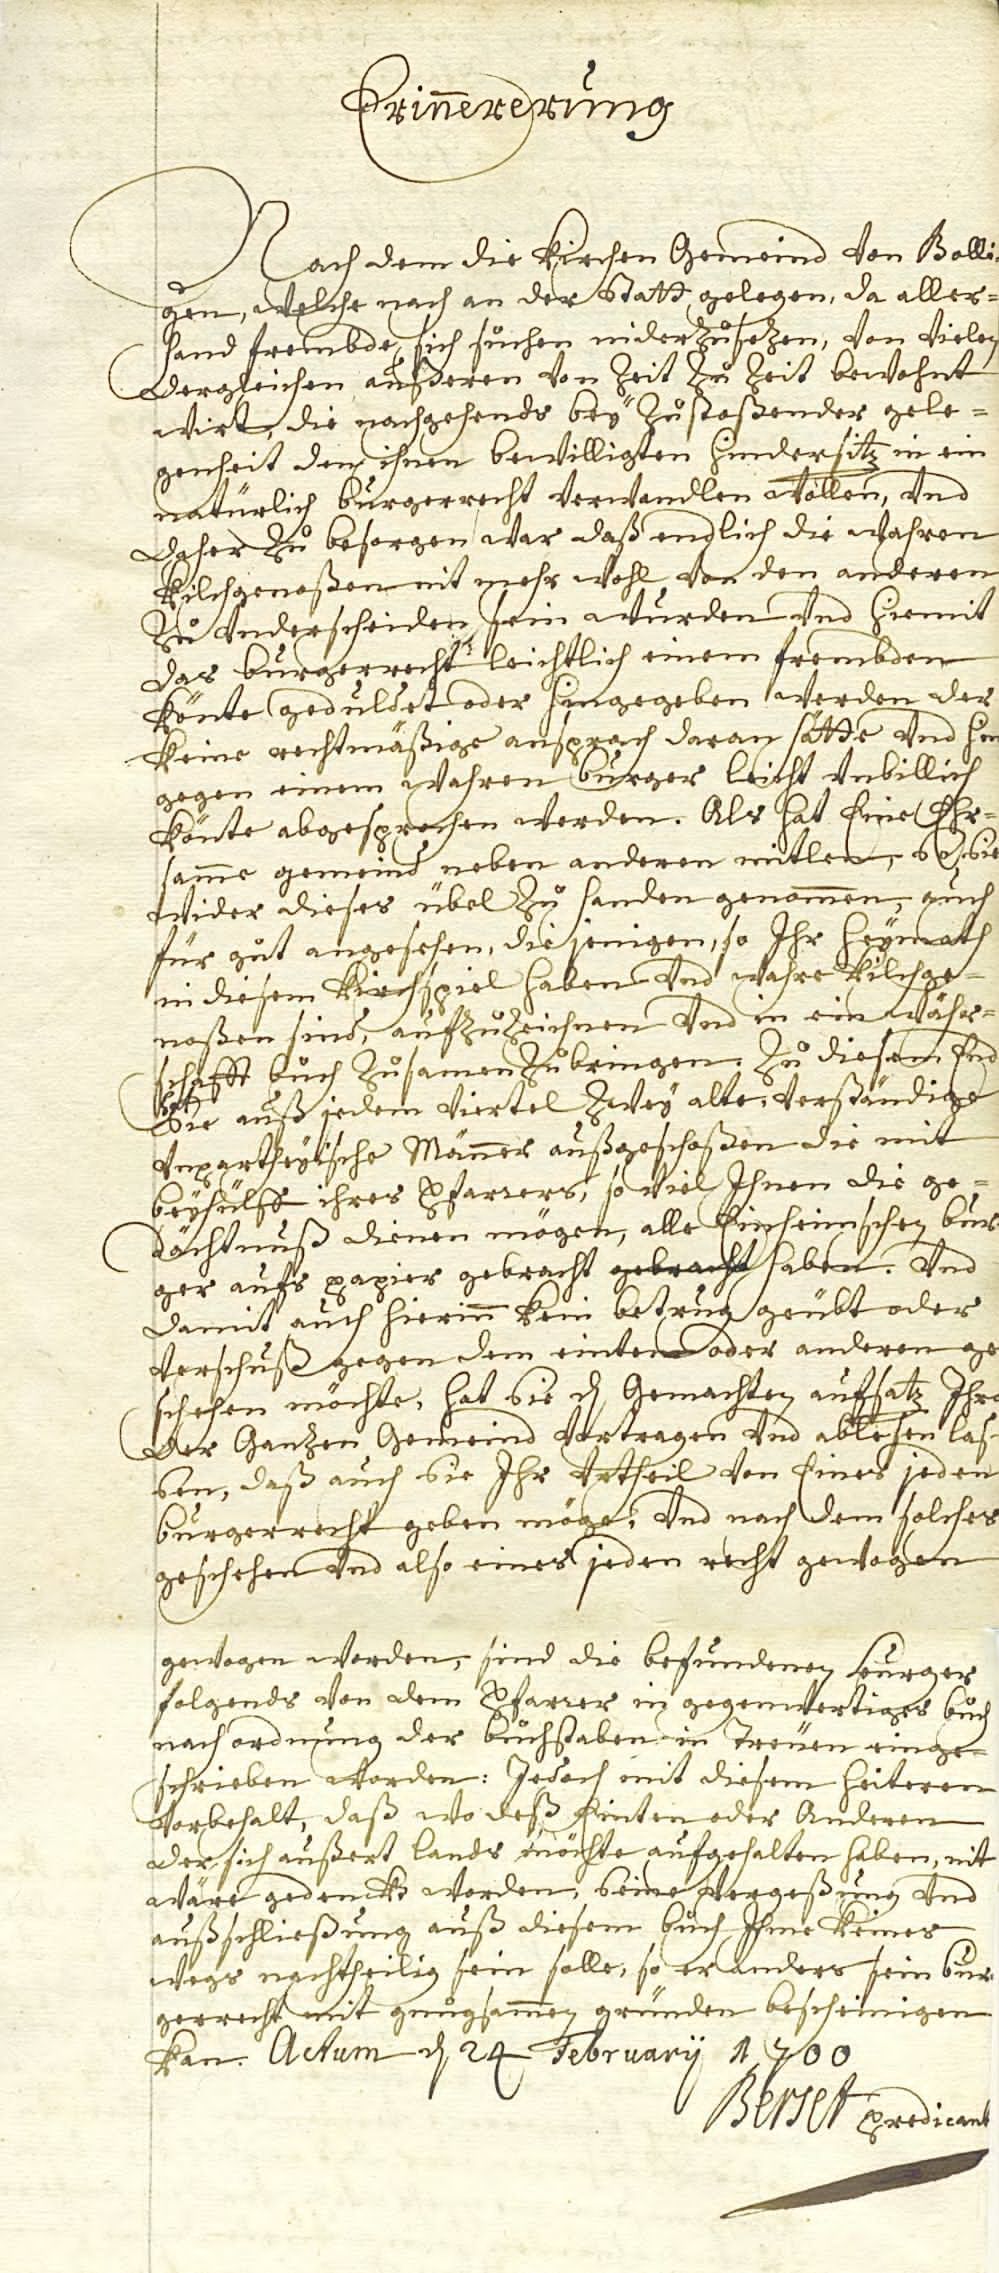 Erin̄ererung
Nach dem die Kirchen Gemeind von Bolli-
gen, welche nach an der Statt gelegen, da aller-
hand frembde, sich suchen niderzusetzen, von vielen
dergleichen äußeren von Zeit zu Zeit bewohnt
wirt, die nachgehends bey zustoßender gele-
genheit den ihnen bewilligten Hindersitz in ein
natürlich burgerrecht verwandlen wollen, und
daher zu besorgen war daß endlich die wahren
Kilchgenoßen nit mehr wohl von den anderen
zu underscheiden sein wurden und hiemit
das burgerrecht leichtlich einem frembden
könte geduldet oder hingegeben werden der
keine rechtmäßige ansprach daran hätte und hin
gegen einem wahren burger leicht unbillich
könte abgesprochen werden. Als hat Eine Ehr-
sam̄e gemeind neben anderen mitlen, so sie
wider dieses übel zu handen genom̄en, auch
für gut angesehen, die jenigen, so Ihr heymath
in diesem Kirchspiel haben und wahre Kilchge-
noßen sind, aufzuzeichnen und in ein währ-
schafft buch zusamen zubringen. Zu diesem End
hat
Sie auß jedem Viertel zwey alte, verständige
unpartheyische Män̄er außgeschoßen die mit
beyhülff ihres Pfarrers, so viel Ihnen die ge-
dächtnuß dienen mögen, alle Einheimschen bur
ger aufs papier gebracht gebracht haben. Und
damit auch hierin̄ kein betrug geübt oder
verschuß gegen dem einten oder anderen ge
schehen möchte, hat Sie den Gemachten aufsatz Ihro
der Gantzen Gemeind vortragen und ablesen las-
sen, daß auch Sie Ihr Urtheil von Eines jeden
burgerrecht geben möge, und nach dem solches
geschehen und also eines jeden recht gewogen
gewogen worden, sind die befundenen burger
folgends von dem Pfarrer in gegenwertiges buch
nach ordnung der buchstaben in Treüen einge-
schrieben worden: Jedoch mit diesem heiteren
Vorbehalt, daß wo deß Einten oder Anderen
der sich aüßert lands möchte aufgehalten haben, nit
wäre gedenckt worden, seine Vergeßung und
außschließung auß diesem buch Ihme keines
wegs nachtheilig sein solle, so er anders sein bur
gerrecht mit gnugsam̄en gründen bescheinigen
kan. Actum den 24 Februarij 1700
Berset Predicant